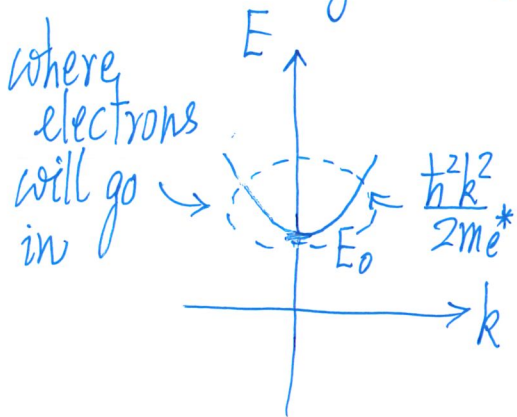 E
where
electrons
will go
in
ħ²k²
2me*
E₀
k